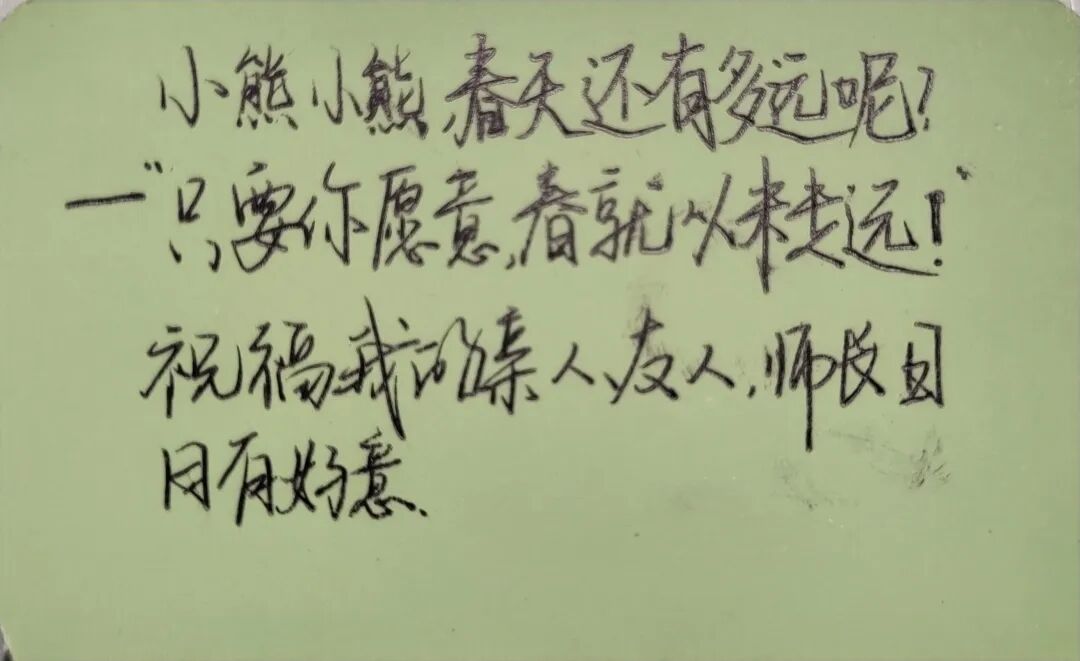 小熊小熊,春天还有多远呢?
—"只要你愿意,春就从未走远!"
祝福我的亲人、友人,师长日
日有好意.